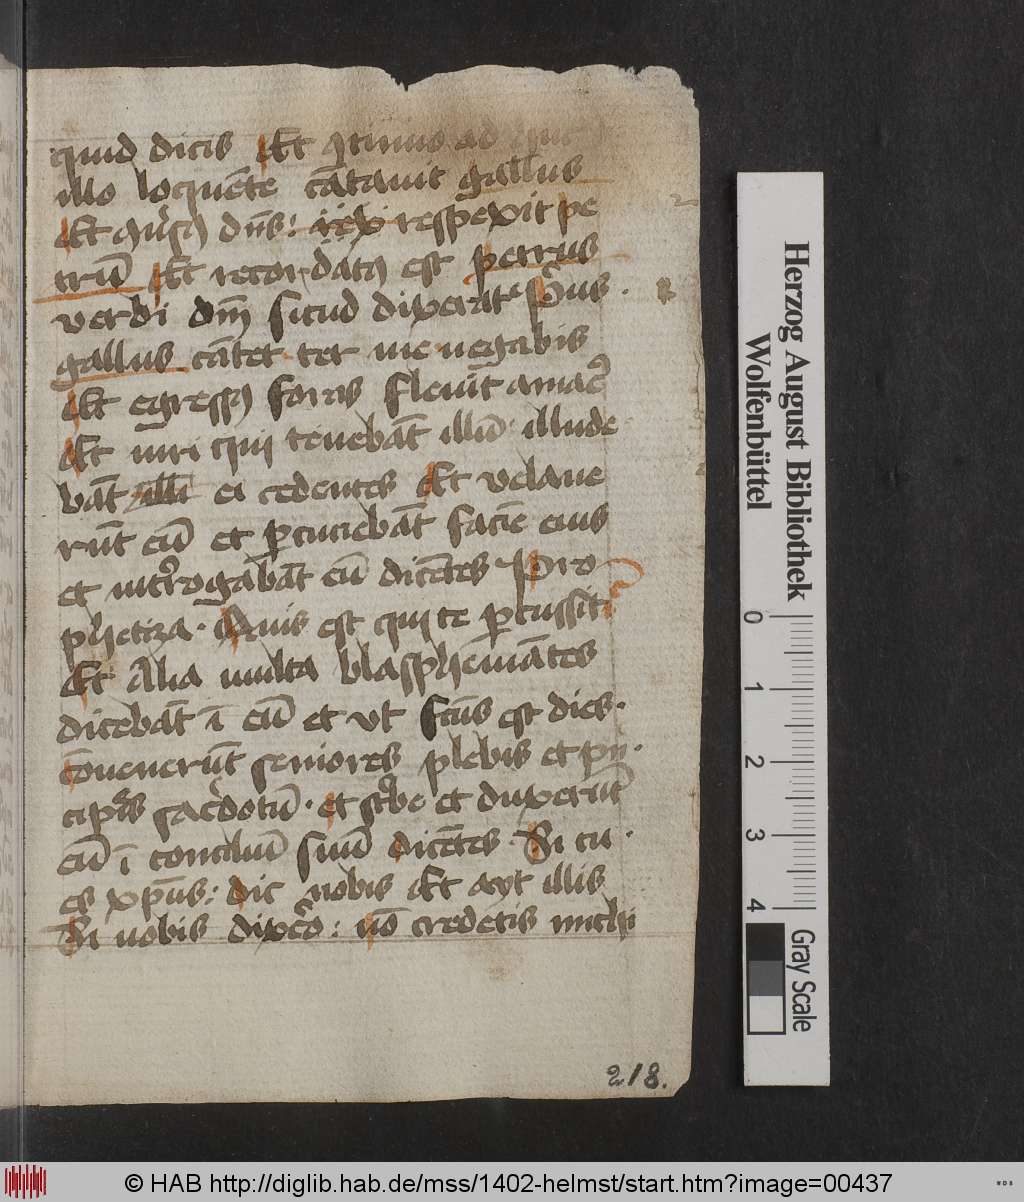 quid dicis Et ɔtinuo ad huc
illo loquēte cātauit gallus
Et ɔuˢꝰ dn̄s: respexit pe
trū Et recordatꝰ est petrus
verbi dn̄i sicud dixerat pͥus
gallus cātet ter me negabis
Et egressꝰ foras fleuit amaᵉ
Et uiri qui tenebāt illū illude
bāt illi ei cedentes Et velaue
rūt eū et ꝑcuciebāt faciē eius
et intᵉrogabāt eū dicētes Pro
phetiza. Quis est qui te ꝑcussit
Et Alia multa blasphemātes
dicebāt ī eū et vt fc̄us est dies.
cōuenerūt seniores plebis et pn.
cipes sac̄dotū. et sc̓be et duxerūt
eū ī conciliū suū dicētes. Si tu.
es xp̄us: dic nobis Et ayt illis
Si uobis dixeᵒ: nō credetis michi
218.
Herzog August Bibliothek
Wolfenbüttel
0 1 2 3 4
Gray Scale
© HAB http://diglib.hab.de/mss/1402-helmst/start.htm?image=00437